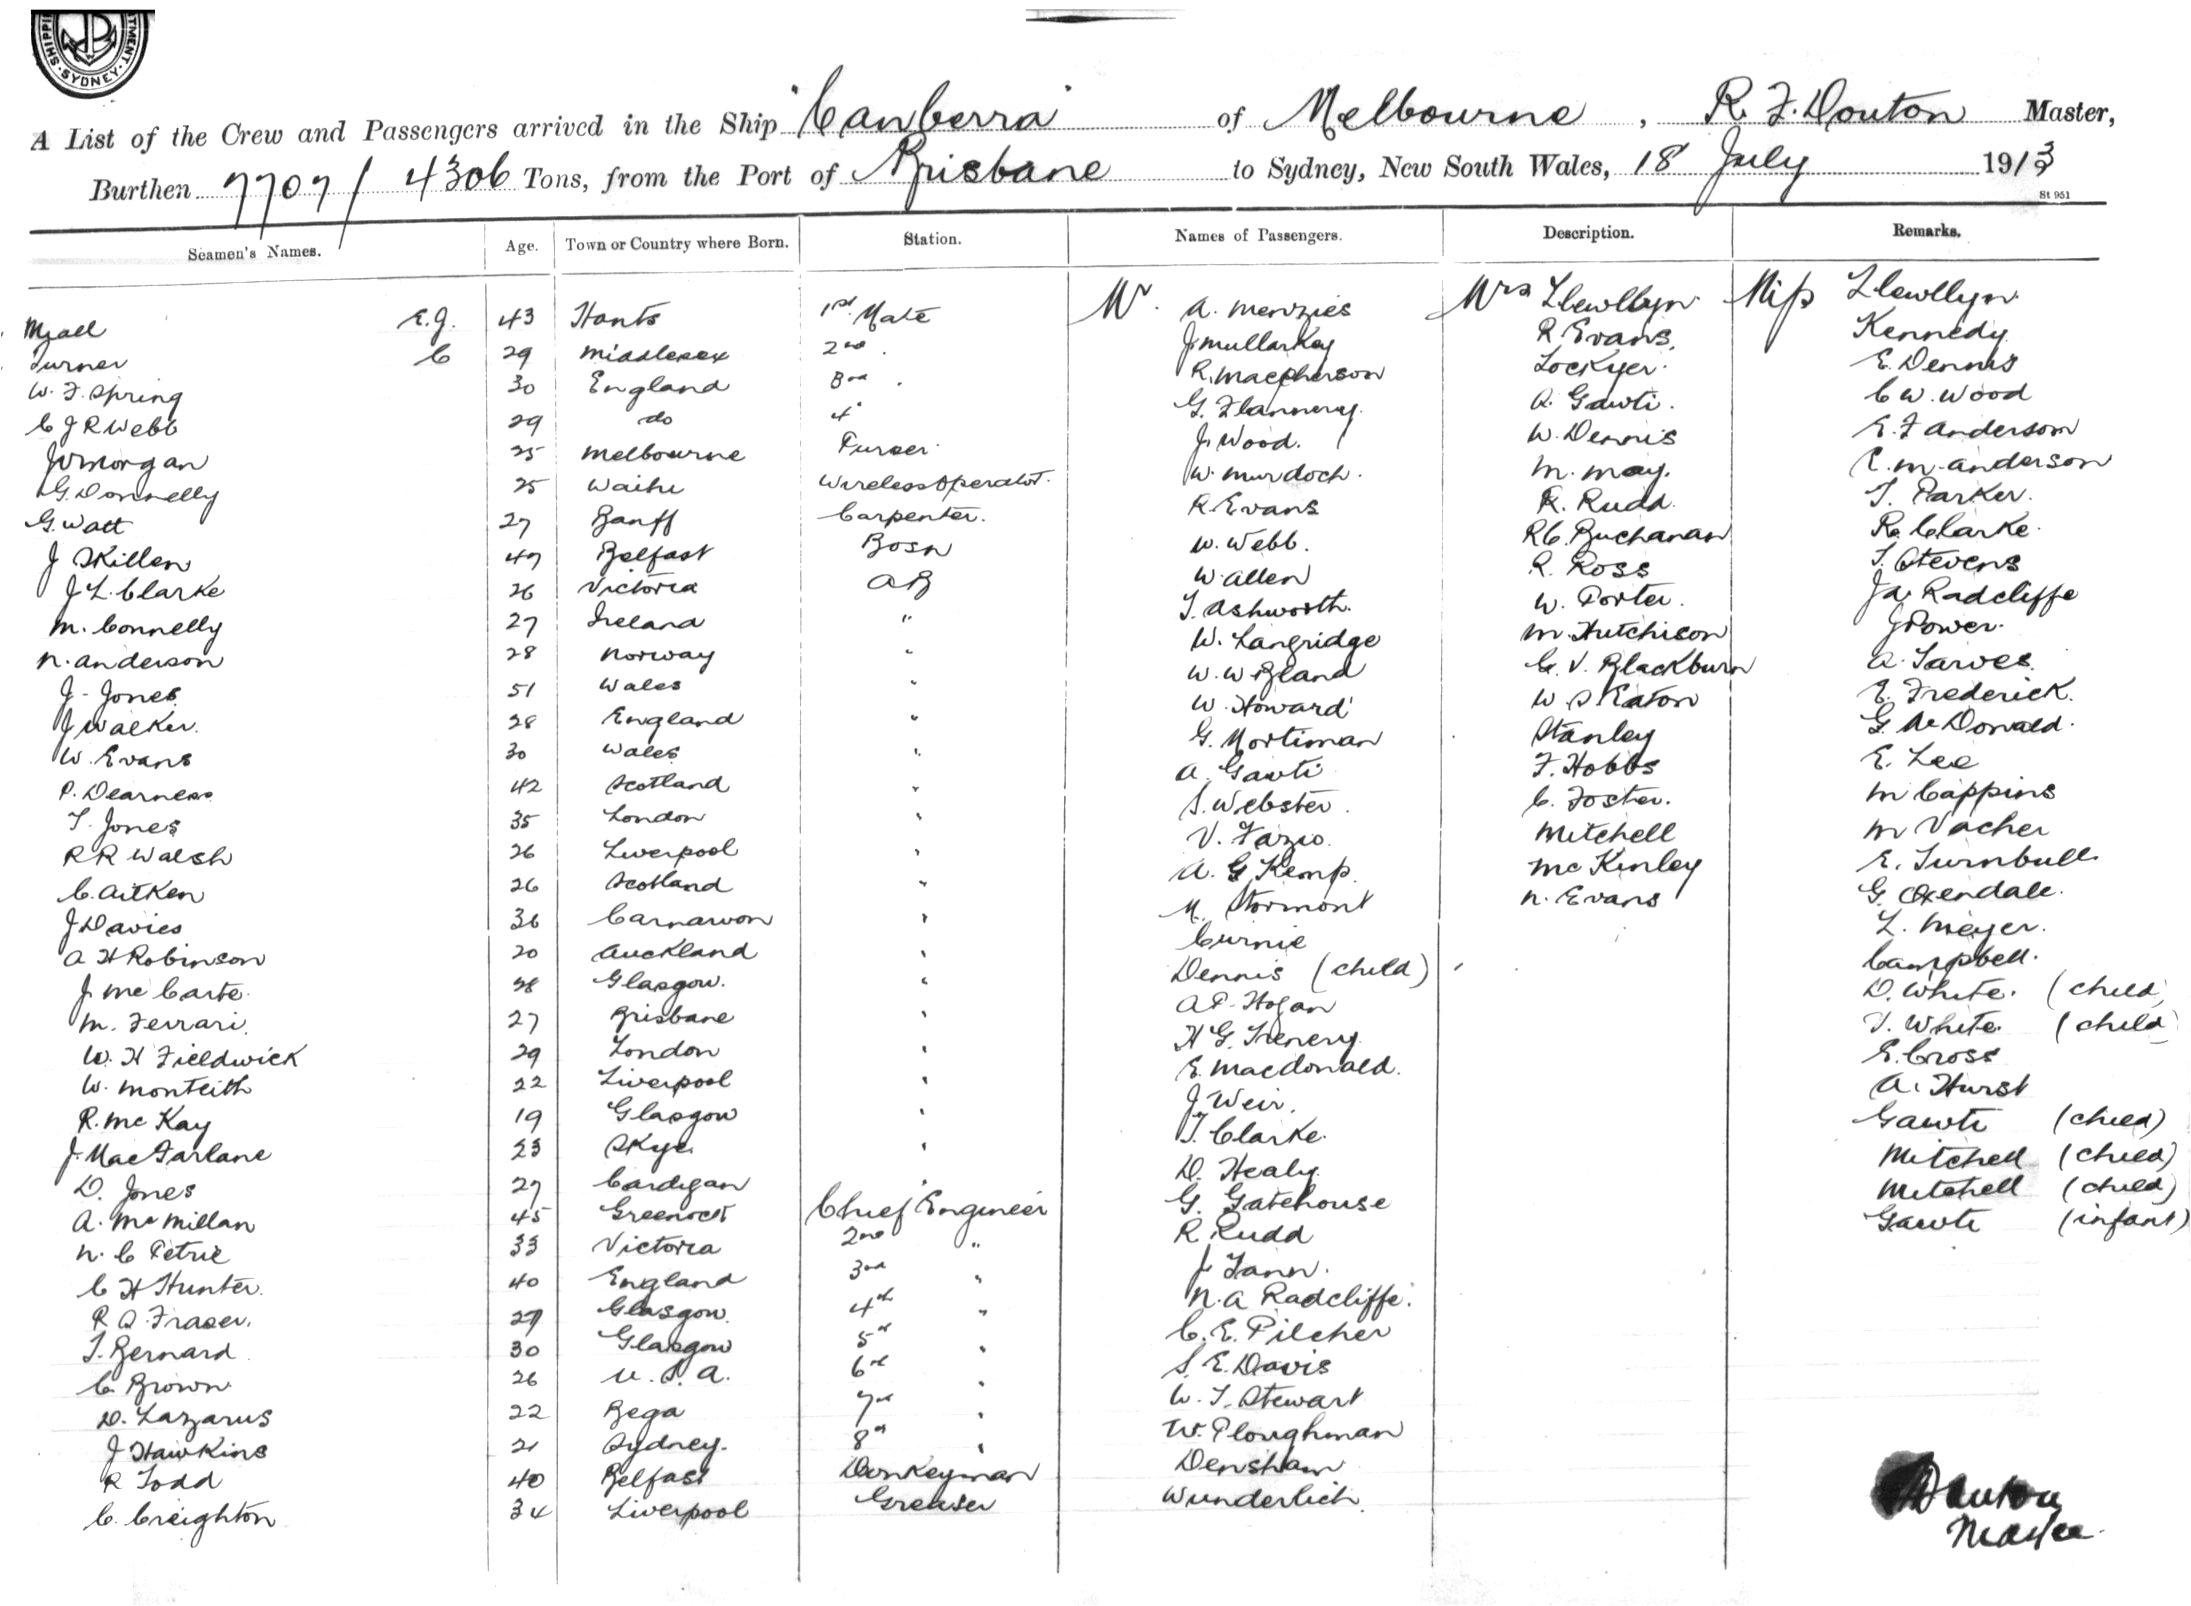 SHIPPING SYDNEY
A List of the Crew and Passengers arrived in the Ship "Canberra" of Melbourne, R. F. Douton Master,
Burthen 7707/4306 Tons, from the Port of Brisbane to Sydney, New South Wales, 18 July 1913
St 951
Seamen's Names. Age. Town or Country where Born. Station. Names of Passengers. Description. Remarks.
Myall E.J. 43 Hants 1st Mate Mr. A. Menzies Mrs Llewllyn Miss Llewllyn
Turner C 29 Middlesex 2nd J Mullarkey R Evans. Kennedy
W. F. Spring 30 England 3rd R. Macpherson Lockyer. E. Dennis
C J R Webb 29 do 4" G. Flannery. A. Gawti. C W. Wood
J W Morgan 25 Melbourne Purser J. Wood. W. Dennis E. F Anderson
G. Donnelly 25 Waihi Wireless Operator. W. Murdoch. M. May. C. M. Anderson
G. Watt 27 Banff Carpenter. R. Evans R. Rudd. T. Parker.
J Skillen 47 Belfast Bosn W. Webb. R C. Buchanan R. Clarke.
J. L. Clarke 26 Victoria AB W. Allen R. Ross T. Stevens
M. Connelly 27 Ireland " T. Ashworth. W. Porter. J A. Radcliffe
N. Anderson 28 Norway " W. Langridge M. Hutchison J Power.
J. Jones 51 Wales " W. W Bland G. V. Blackburn A. Tarves.
J Walker. 28 England " W. Howard W S Eaton E. Frederick.
W. Evans 30 Wales " G. Mortiman Stanley G. McDonald.
P. Dearness 42 Scotland " A. Gawti F. Hobbs E. Lee
T. Jones 35 London " S. Webster. C. Foster. M Cappins
R R Walsh 26 Liverpool " V. Fazio. Mitchell M Vacher
C. Aitken 26 Scotland " A. G Kemp. McKinley E. Turnbull
J Davies 36 Carnarvon " M. Stormont N. Evans G. Oxendale.
A H Robinson 20 Auckland " Curnie L. Meyer.
J. McCarte. 28 Glasgow. " Dennis (child) Campbell.
M. Ferrari. 27 Brisbane " A P. Hogan D. White. (child)
W. H Fieldwick 29 London " H G. Trenery. T. White. (child)
W. Monteith 22 Liverpool " E. Macdonald. E. Cross
R. McKay 19 Glasgow " J Weir. A. Hurst
J. MacFarlane 23 Skye. " T. Clarke. Gawti (child)
D. Jones 27 Cardigan " D. Healy. Mitchell (child)
A. McMillan 45 Greenock Chief Engineer G. Gatehouse Mitchell (child)
N. C Petrie 33 Victoria 2nd " R. Rudd Gawti (infant)
C H Hunter. 40 England 3rd " J Tann.
R A. Fraser. 27 Glasgow. 4th " N. A Radcliffe.
T. Bernard 30 Glasgow 5th " C. E. Pilcher
C. Brown. 26 U.S.A. 6th " S. E. Davis
D. Lazarus 22 Bega 7th " W. T. Stewart
J Hawkins 21 Sydney. 8th " W. Ploughman
R Todd 40 Belfast Donkeyman Densham
C. Creighton 34 Liverpool Greaser Wunderlich.
Douton
Master